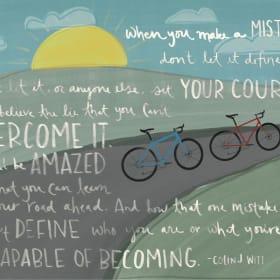 When you make a MIST
don't let it define
let it, or anyone else, set YOUR COUR
believe the lie that you can't
ERCOME IT.
be AMAZED
hat you can learn
our road ahead. And how that one mistake
t DEFINE who you are or what you're
APABLE OF BECOMING. -COLIN J WITT